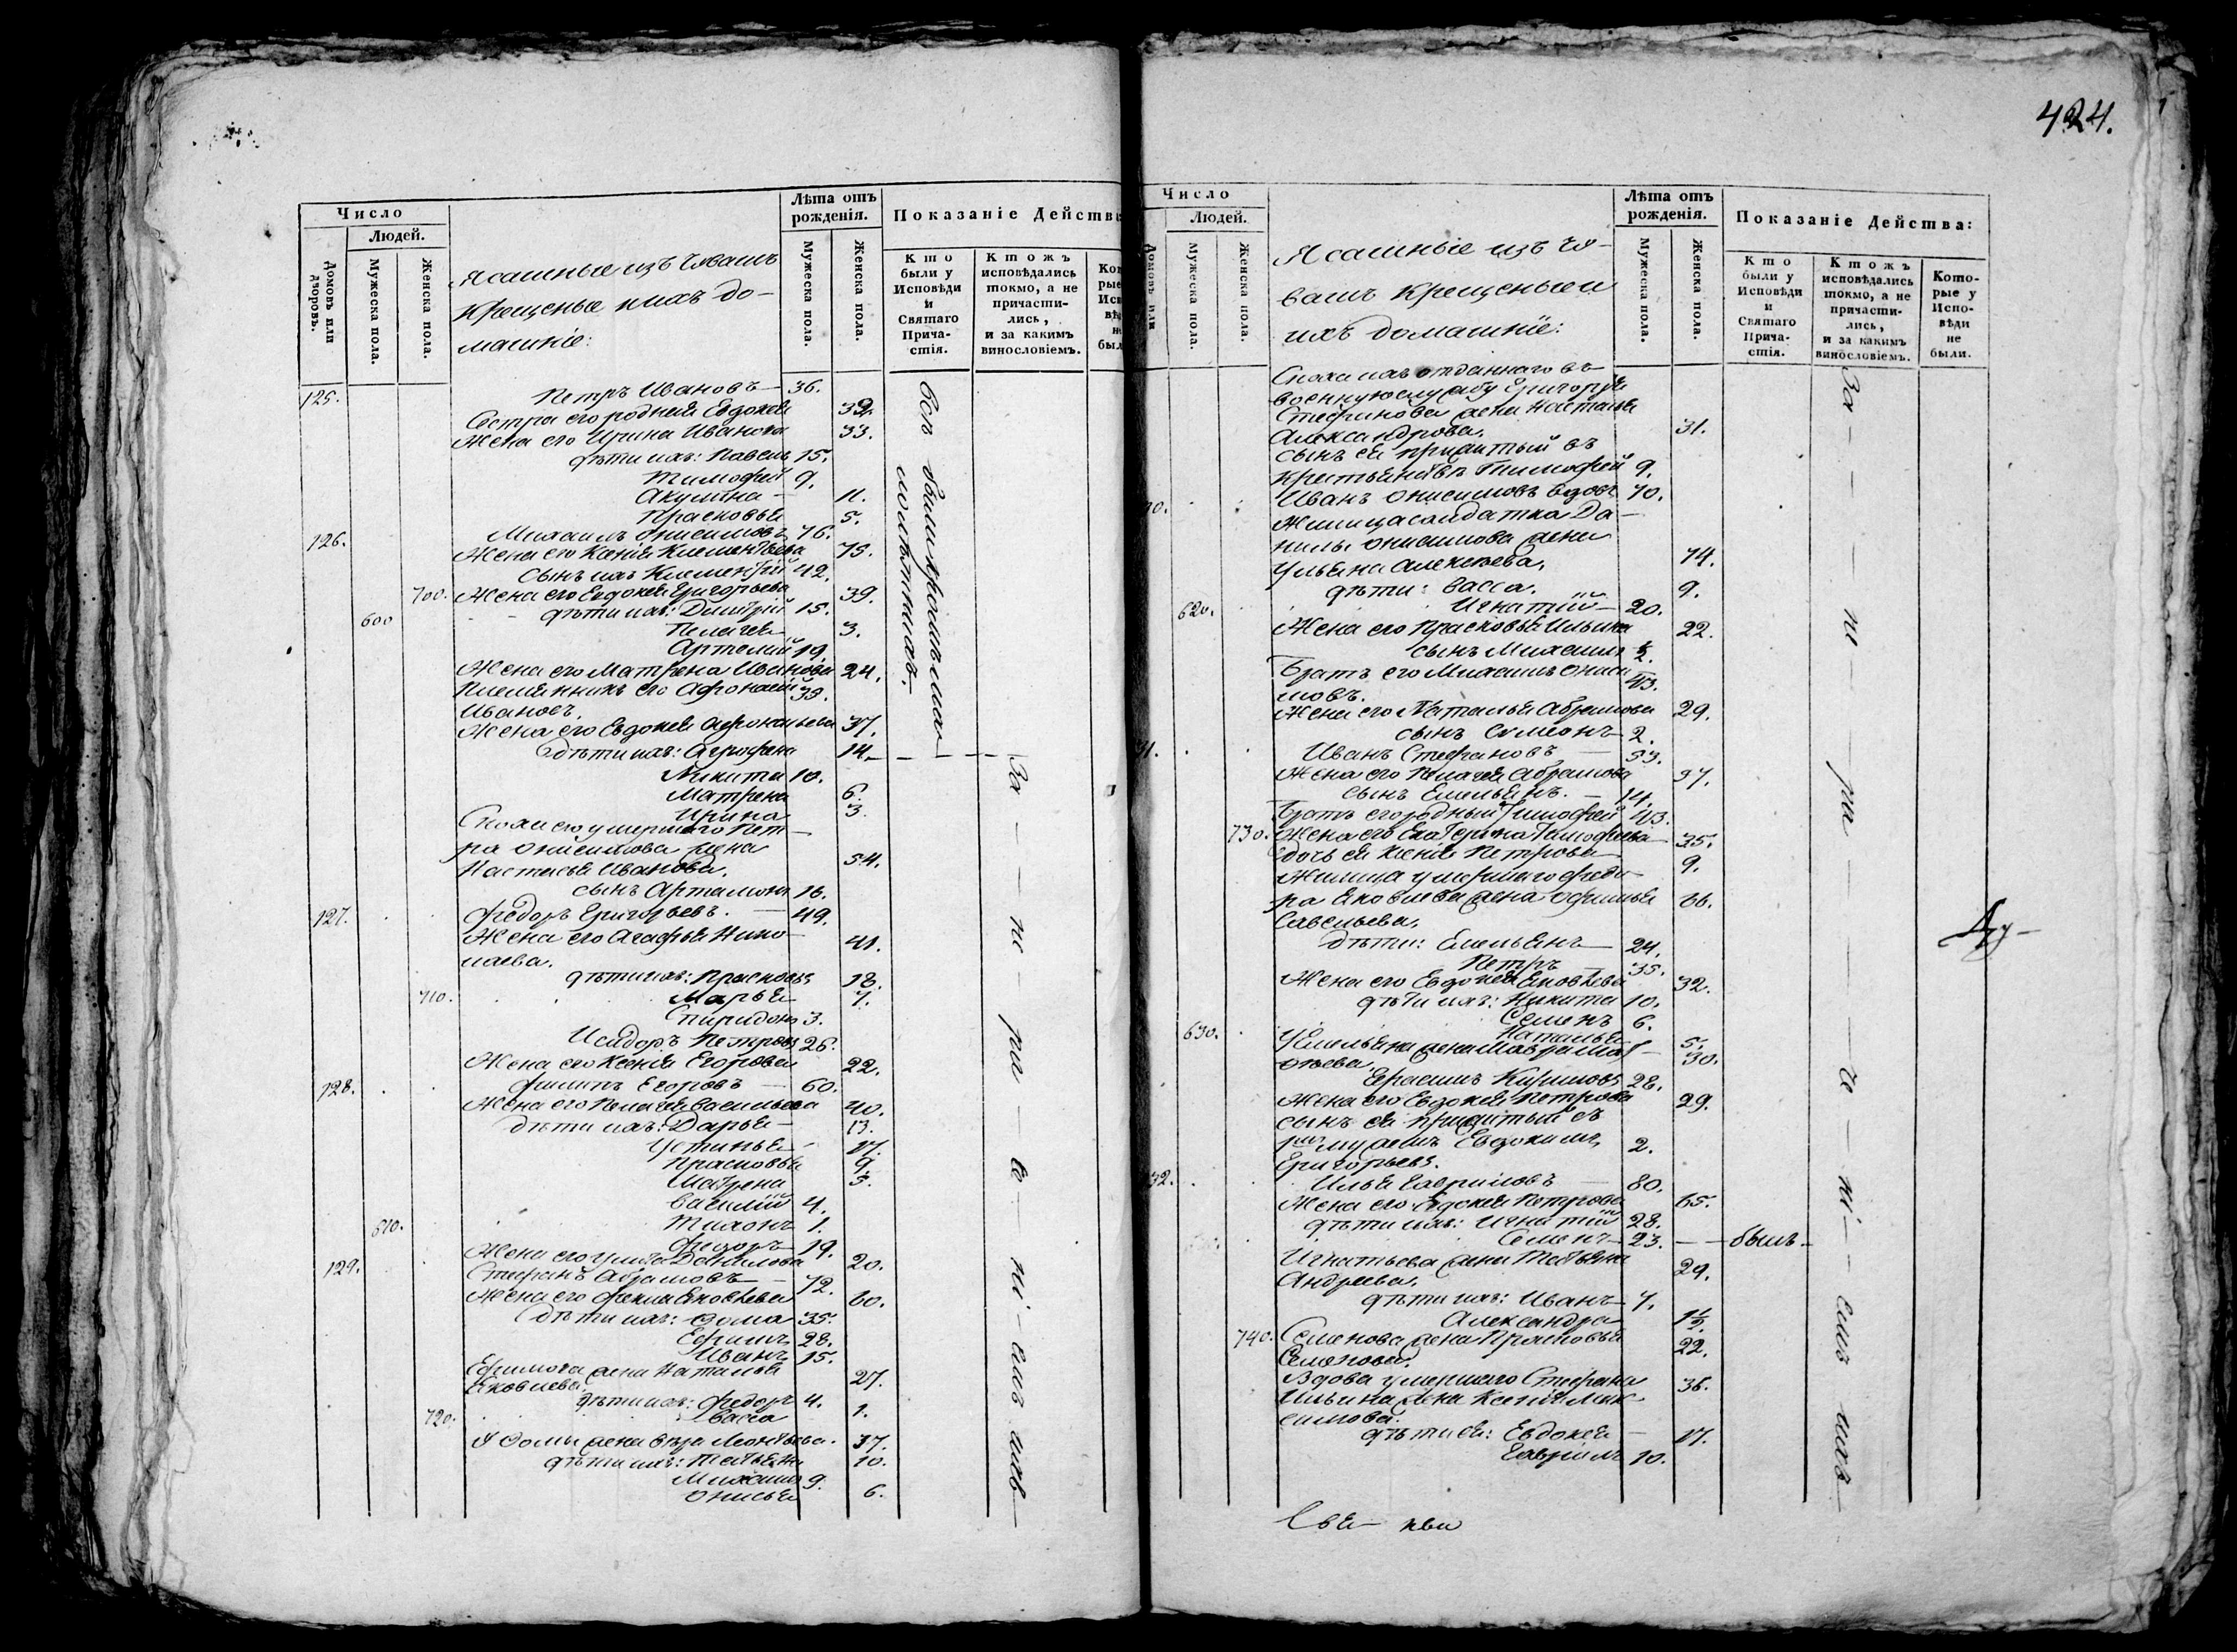 Число
Людей.
Домовъ или дворовъ.
Мужеска пола.
Женска пола.
Ясашные изъ чувашъ
крещеные и ихъ до-
машніе:
Лѣта отъ рожденія.
Мужеска пола.
Женска пола.
Показаніе Действ
Кто были у Исповѣди и Святаго Причастія.
Ктожъ исповѣдались токмо, а не причастились, и за какимъ винословіемъ.
125. Петръ Ивановъ — 36.
Сестра его родная Евдокея
Жена его Ирина Иванова 33.
дѣти ихъ: Павелъ 15.
Тимофей 9.
Акулина — 11.
Прасковья 5.
126. Михаилъ Онисимовъ 76.
Жена его Ксенія Клементьева 75.
Сынъ ихъ Климентій 42.
700. Жена его Евдокея Григорьева 39.
600 дѣти ихъ: Димитрій 15.
Пелагея 3.
19.
Жена его Матрена Иванова 24.
Племянникъ его Афонасій 39.
Ивановъ.
Жена его Евдокея Афонасьева 37.
дѣти ихъ: Агрофена 14.
Никита 10.
Матрена 6.
Ирина 3.
Сноха ево умершаго Пет-
ра Онисимова жена
Настасья Иванова. 54.
сынъ Артамонъ 16.
127. Федоръ Григорьевъ. — 49.
Жена его Агафья Нико-
лаева. 41.
дѣти ихъ: Прасковья 18.
710. Марья 7.
Спиридонъ 3.
Исидоръ Петровъ 26.
Жена его Ксенія Егорова 22.
128. Филипъ Егоровъ — 60.
Жена его Пелагея Васильева 40.
дѣти ихъ: Дарья — 13.
Устинья — 17.
Прасковья 9.
Матрена 5.
Василій 4.
610. Тихонъ 1.
Федоръ 19.
Жена его Данилова 20.
129. Стефанъ Абрамовъ — 72.
Жена его Фекла Яковлева 60.
дѣти ихъ: Фома 35.
Ефимъ 28.
Иванъ 15.
Ефимова жена Наталья 27.
Яковлева.
дѣти ихъ: Федоръ 4.
720. Васса 1.
У Фомы жена Леонтьева. 37.
дѣти ихъ: Татьяна 10.
Михаилъ 9.
Онисья 6.
всѣ были кромѣ мало
лѣтнихъ.
За — не — ра — де — ні — емъ ихъ —
424.
Число
Людей.
Домовъ или
Мужеска пола.
Женска пола.
Ясашные изъ чу-
вашъ крещеные и
ихъ домашніе:
Лѣта отъ рожденія.
Мужеска пола.
Женска пола.
Показаніе Действа:
Кто были у Исповѣди и Святаго Причастія.
Ктожъ исповѣдались токмо, а не причастились, и за какимъ винословіемъ.
Которые у Исповѣди не были.
Сноха ихъ отданнаго въ
военную службу Григорья
Стефанова жена Наталья
Александрова. 31.
сынъ ея прижитый въ
крестьянствѣ Тимофей 9.
Иванъ Онисимовъ вдовъ 70.
Жилица солдатка Да-
нилы Онисимова жена
Ульяна Алексеева. 74.
дѣти: Васса. 9.
620. Игнатій — 20.
Жена его Прасковья Ильина 22.
сынъ Михаилъ ½.
Братъ его Михаилъ Ониси 43.
мовъ.
Жена его Наталья Абрамова 29.
сынъ Симеонъ 2.
Иванъ Стефановъ — 53.
Жена его Пелагея Абрамова 57.
сынъ Емельянъ. — 14.
Братъ его родный Тимофей 43.
730. Жена его Екатерина Тимофеева 35.
дочь ея Ксенія Петрова 9.
Жилица умершаго Федо-
ра Яковлева жена Офимья 66.
Савельева.
дѣти: Емельянъ — 24.
Петръ — 35.
Жена его Евдокея Яковлева 32.
дѣти ихъ: Никита 10.
Семенъ 6.
630. Наталья 5.
У Емельяна жена 30.
Герасимъ 28.
Жена его Евдокея Петрова 29.
сынъ ея прижитый съ
мужемъ Евдокимъ 2.
Григорьевъ.
Илья Гавриловъ — 80.
Жена его Евдокея Петрова 65.
дѣти ихъ: Игнатій 28.
Семенъ 23. — — былъ —
Игнатьева жена Татьяна 29.
Андреева.
дѣти ихъ: Иванъ 7.
Александра 1½.
740. Семенова жена Прасковья 22.
Семенова.
Вдова умершаго Стефана 36.
Ильина жена Ксенія Мак-
симова.
дѣти ея: Евдокея — 17.
Гавріилъ 10.
За — не — ра — де — ні — емъ ихъ —